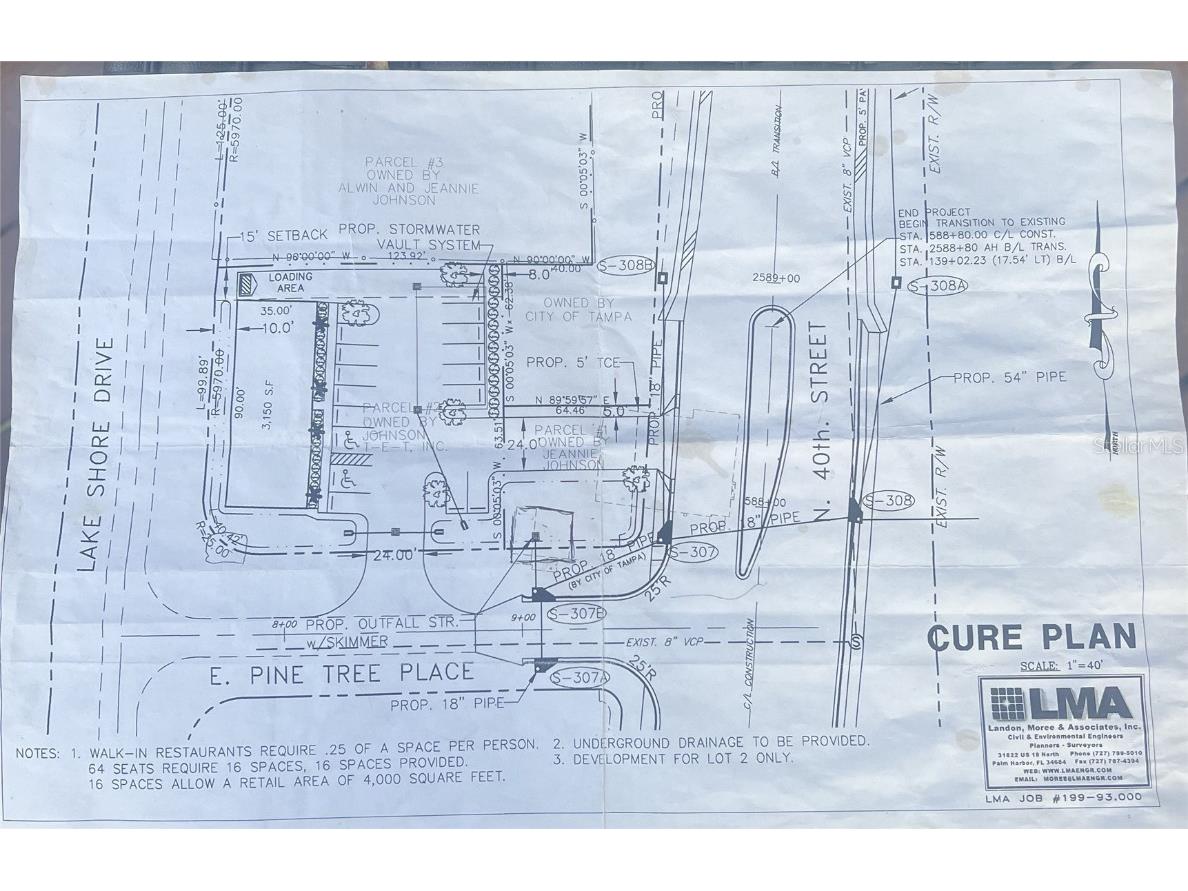 L=125.00'
R=5970.00
PARCEL #3
OWNED BY
ALWIN AND JEANNIE
JOHNSON
S 00°05'03" W
PRO
B/L TRANSITION
EXIST. 8" VCP
PROP. 5' PA
EXIST. R/W
15' SETBACK
PROP. STORMWATER
VAULT SYSTEM
N 90°00'00" W
123.92'
N 90°00'00" W
40.00'
8.0'
LOADING
AREA
S-308B
2589+00
END PROJECT
BEGIN TRANSITION TO EXISTING
STA. 588+80.00 C/L CONST.
STA. 2588+80 AH B/L TRANS.
STA. 139+02.23 (17.54' LT) B/L
S-308A
35.00'
10.0'
OWNED BY
CITY OF TAMPA
S 00°05'03" W
62.38'
LAKE SHORE DRIVE
L=99.89'
R=5970.00'
90.00'
3,150 S.F
PROP. 5' TCE
PROP. 18" PIPE
N. 40th. STREET
PROP. 54" PIPE
N 89°59'57" E
64.46'
5.0'
PARCEL #2
OWNED BY
JOHNSON
T-E-T, INC.
63.51'
S 00°05'03" W
24.0'
PARCEL #1
OWNED BY
JEANNIE
JOHNSON
NORTH
StellarMLS
588+00
S-308
EXIST. R/W
40.42'
R=25.00'
24.00'
PROP. 18" PIPE
S-307
PROP. 18" PIPE
(BY CITY OF TAMPA)
25'R
S-307B
8+00
PROP. OUTFALL STR.
w/SKIMMER
9+00
EXIST. 8" VCP
S
C/L CONSTRUCTION
E. PINE TREE PLACE
25'R
S-307A
PROP. 18" PIPE
CURE PLAN
SCALE: 1"=40'
LMA
Landon, Moree & Associates, Inc.
Civil & Environmental Engineers
Planners - Surveyors
31622 US 19 North Phone (727) 789-5010
Palm Harbor, FL 34684 Fax (727) 787-4394
WEB: WWW.LMAENGR.COM
EMAIL: MOREE@LMAENGR.COM
LMA JOB #199-93.000
NOTES: 1. WALK-IN RESTAURANTS REQUIRE .25 OF A SPACE PER PERSON.
64 SEATS REQUIRE 16 SPACES, 16 SPACES PROVIDED.
16 SPACES ALLOW A RETAIL AREA OF 4,000 SQUARE FEET.
2. UNDERGROUND DRAINAGE TO BE PROVIDED.
3. DEVELOPMENT FOR LOT 2 ONLY.